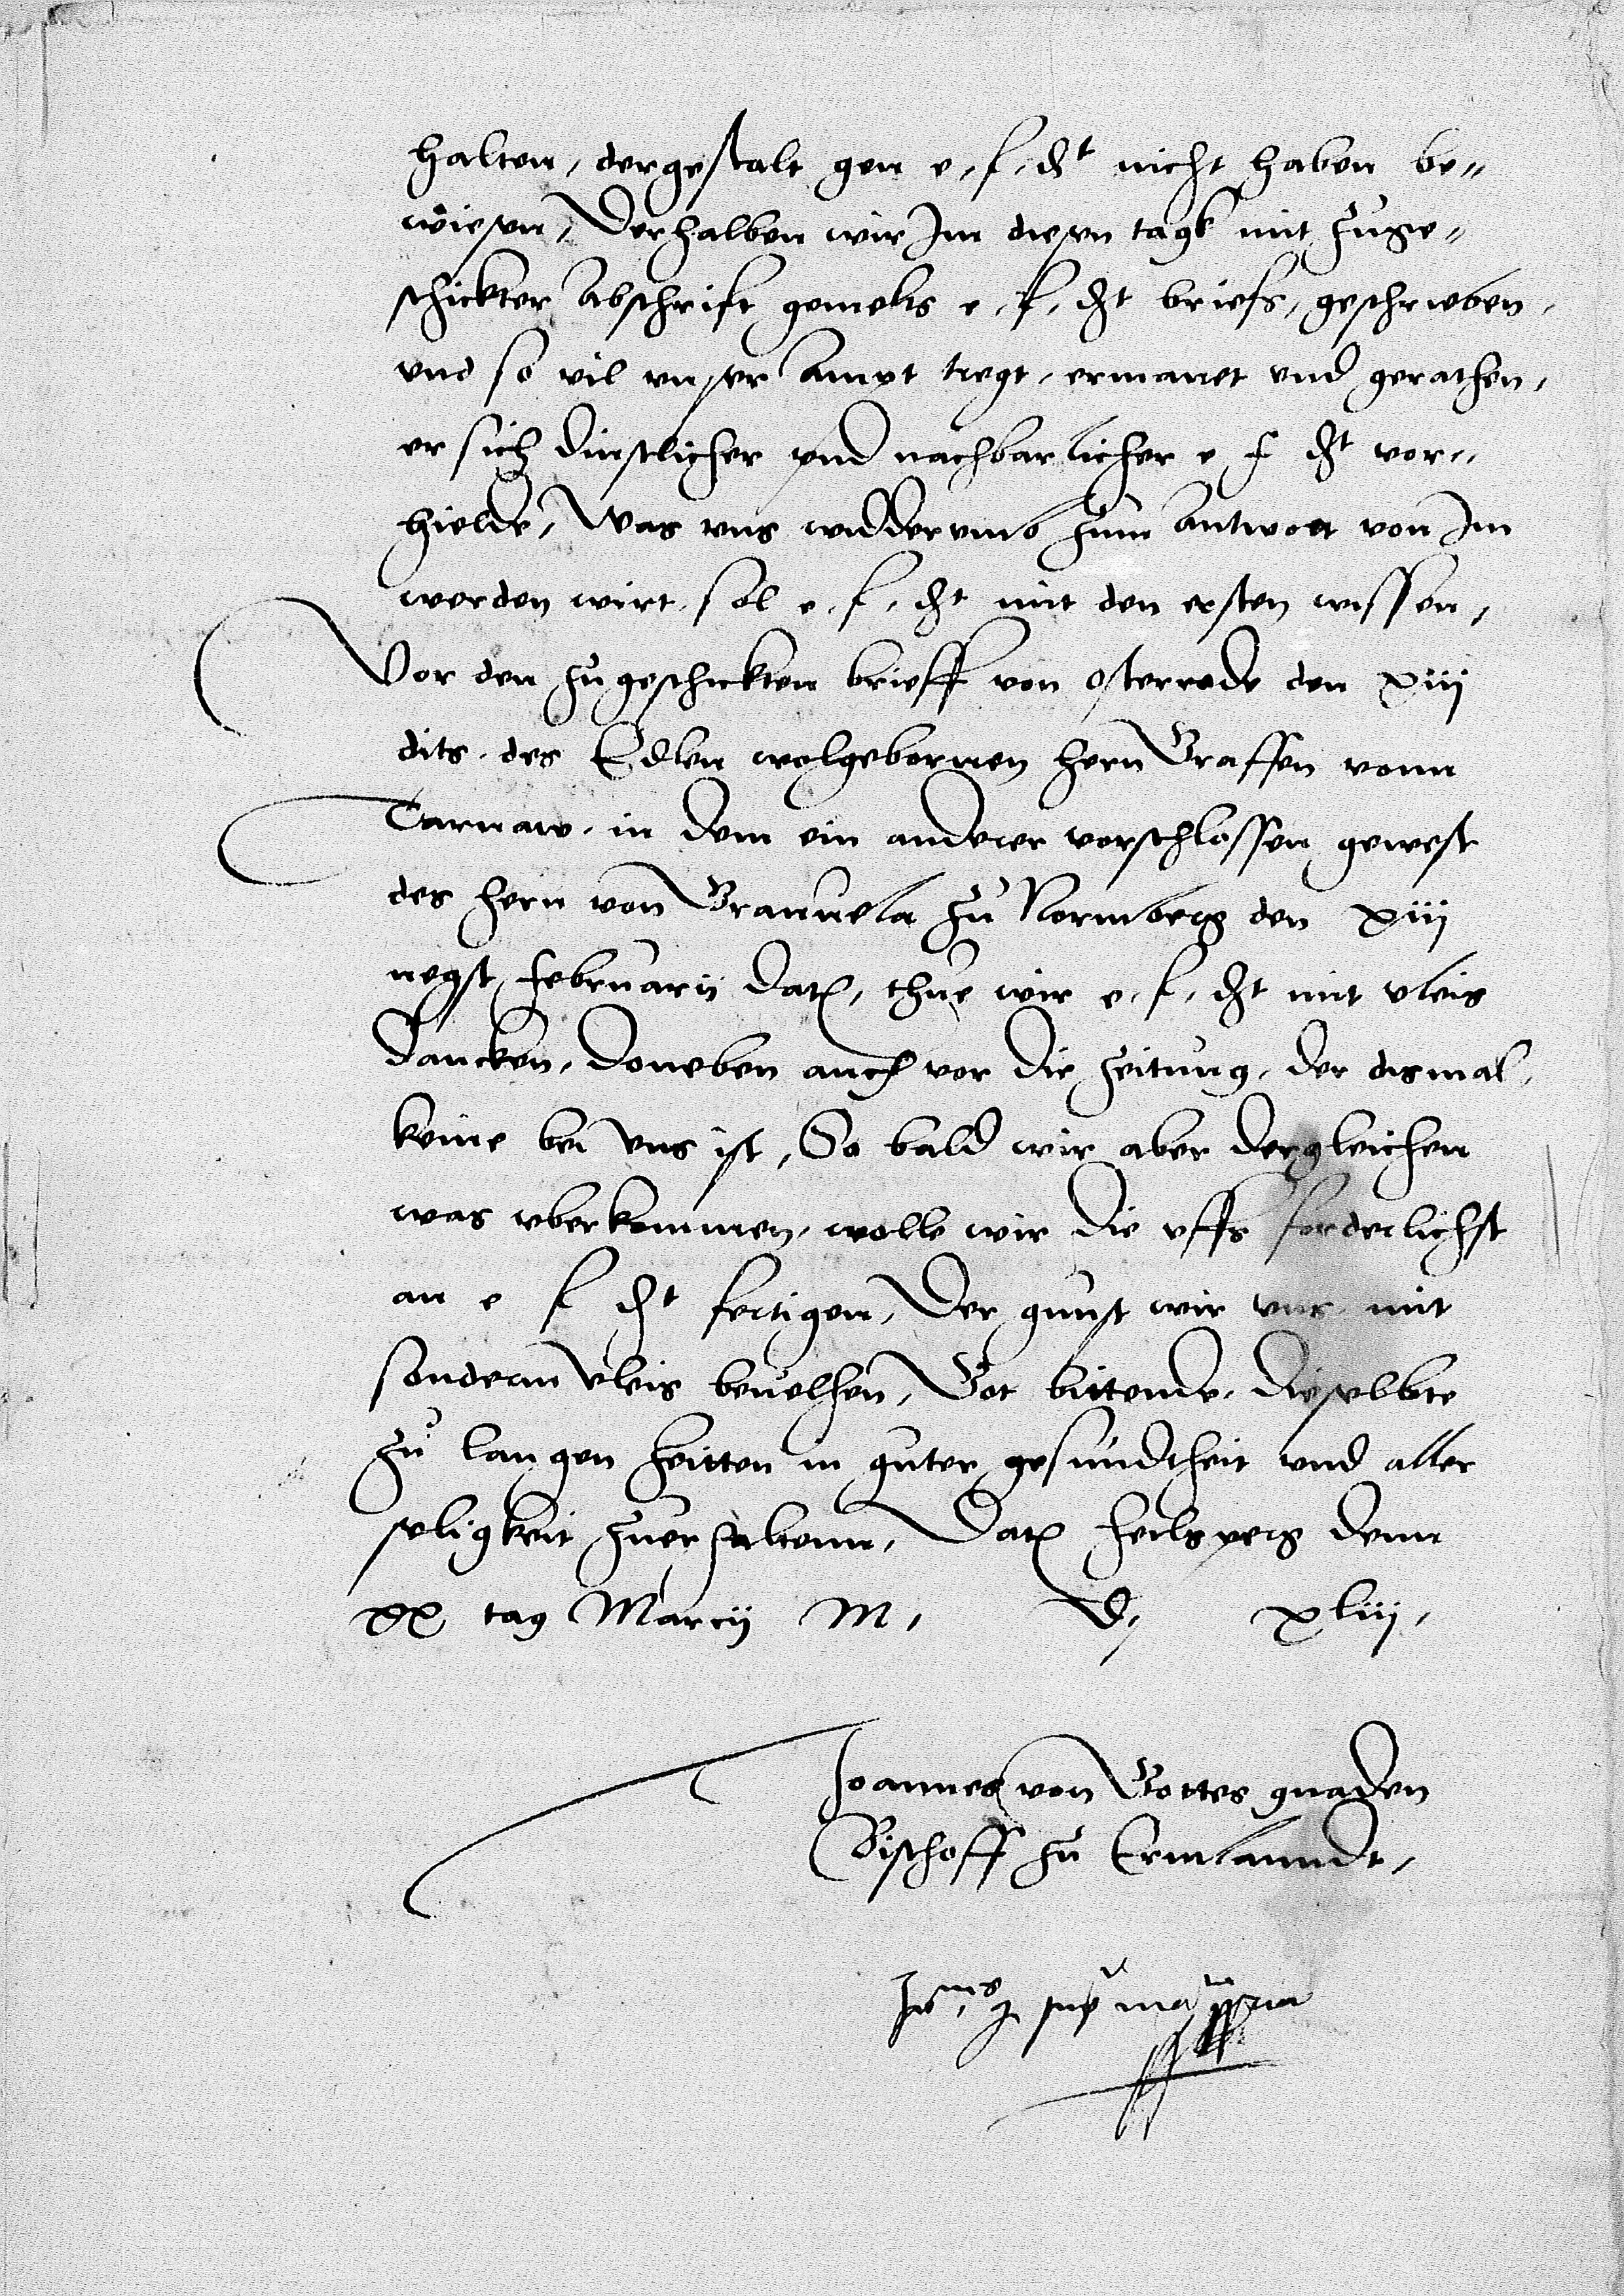 halten, dergestalt gen e. f. dt nicht haben be-
wiesen, Derhalben wir Im diesen tagk mit zuge-
schickter Abschrift gemelts e. f. dt briefs, geschrieben,
vnd so vil vnser Ampt tregt, ermanet vnd gerathen,
er sich dinstlicher vnd nachbarlicher e f dt vor-
hielde, Was vns widdervmb zum Antwort von Im
werden wirt, sol e. f. dt mit den ersten wissen,
Vor den zugeschickten brieff von Osterrode den xiiij
dits, des Edlen wolgebornen hern Graffen vonn
Tarnaw, in dem ein anderer vorschlossen gewest
des hern von Granuela zu Normberg den xiij
negst february dat, thue wir e. f. dt mit vleis
dancken, doneben auch vor die zeitung, der dismal
keine bei vns ist, So bald wir aber dergleichen
was vberkommen, wolle wir die vffs forderlichst
an e f dt fertigen, Der gunst wir vns mit
sonderm vleis beuelhen, Got bittende, dieselbte
zu langen zeitten in guter gesundtheit vnd aller
seligkeit zuerhaltenn, Dat heilsperg denn
xx tag Marcij M. D. xliij.
Joannes von Gottes gnaden
Bischoff zu Ermlanndt,